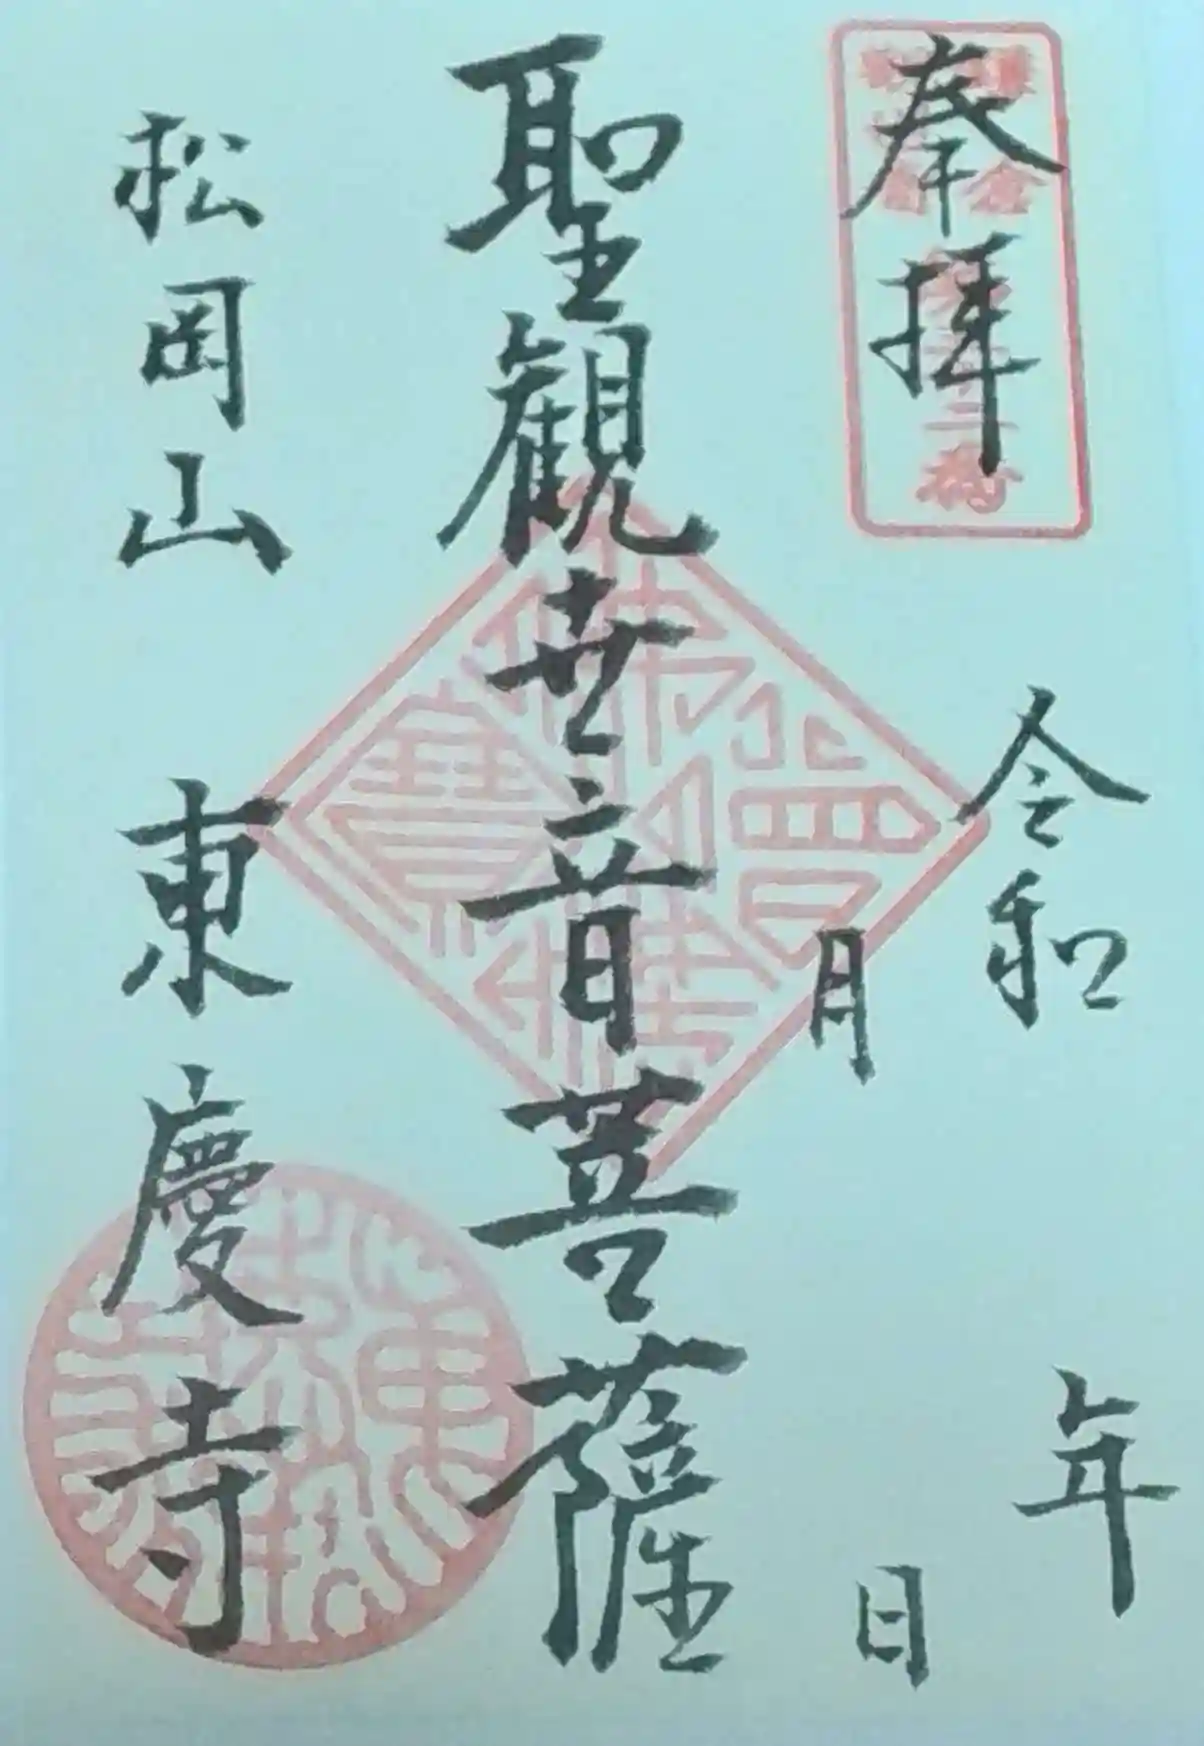 奉拝
令和 年
月 日
聖観世音菩薩
松岡山 東慶寺